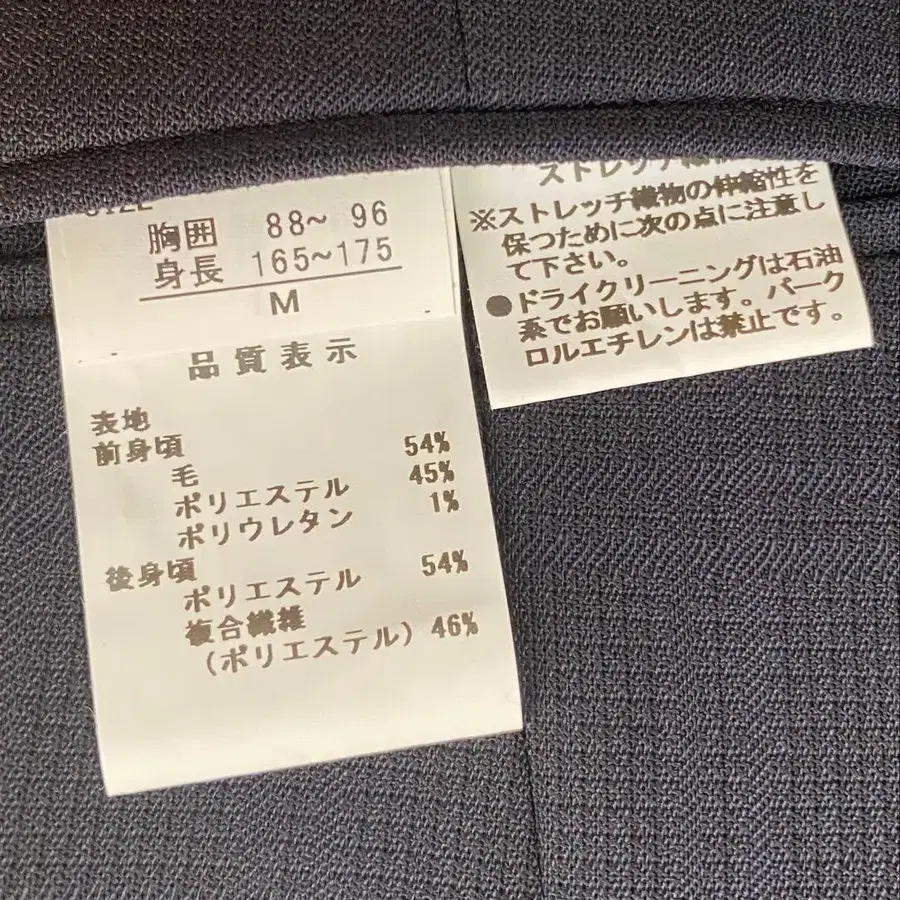 SIZE
胸囲 88~ 96
身長 165~175
M
品質表示
表地
前身頃
毛 54%
ポリエステル 45%
ポリウレタン 1%
後身頃
ポリエステル 54%
複合繊維
(ポリエステル) 46%
ストレッチ織
※ストレッチ織物の伸縮性を
保つために次の点に注意し
て下さい。
●ドライクリーニングは石油
系でお願いします。パーク
ロルエチレンは禁止です。